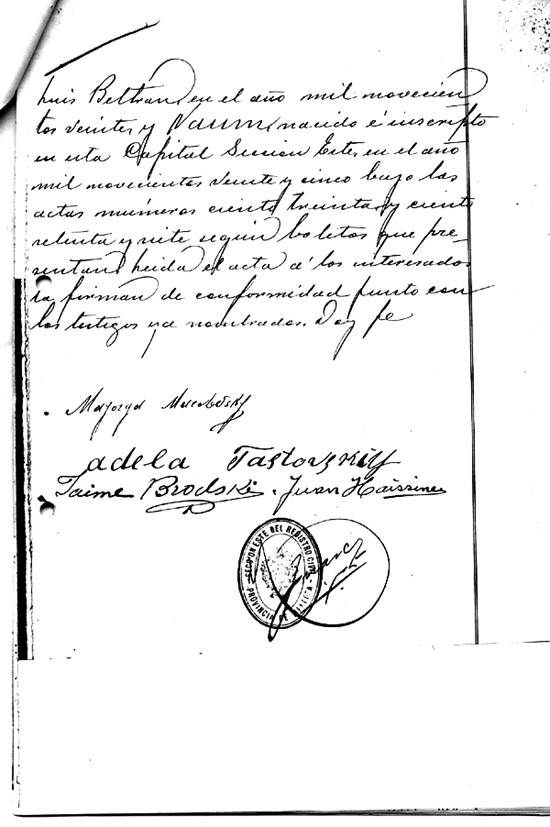 Luis Beltran, en el año mil novecien
tos veinte y Naum, nacido é inscripto
en esta Capital Seccion Este, en el año
mil novecientos veinte y cinco bajo las
actas numeros ciento treinta y ciento
setenta y siete segun boletos que pre-
sentan leida el acta á los interesados
la firman de conformidad junto con
los testigos ya nombrados. Doy fe
adela Tastovskiy
Jaime Brodski. Juan Haissine
SECCION ESTE DEL REGISTRO CIVIL
PROVINCIA DE